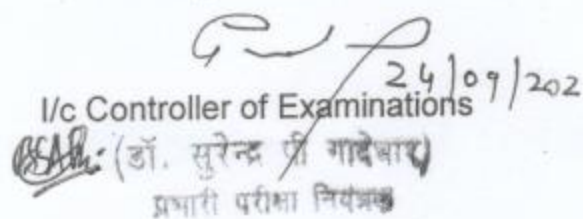 24/09/202
I/c Controller of Examinations
(डॉ. सुरेन्द्र पी गादेवार)
प्रभारी परीक्षा नियंत्रक